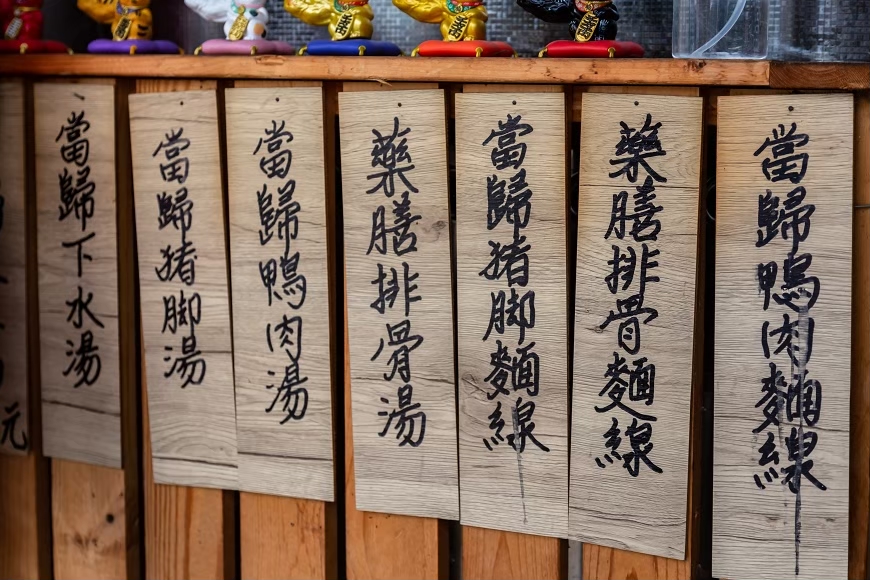 當歸鴨肉麵線
藥膳排骨麵線
當歸猪脚麵線
藥膳排骨湯
當歸鴨肉湯
當歸猪脚湯
當歸下水湯
元